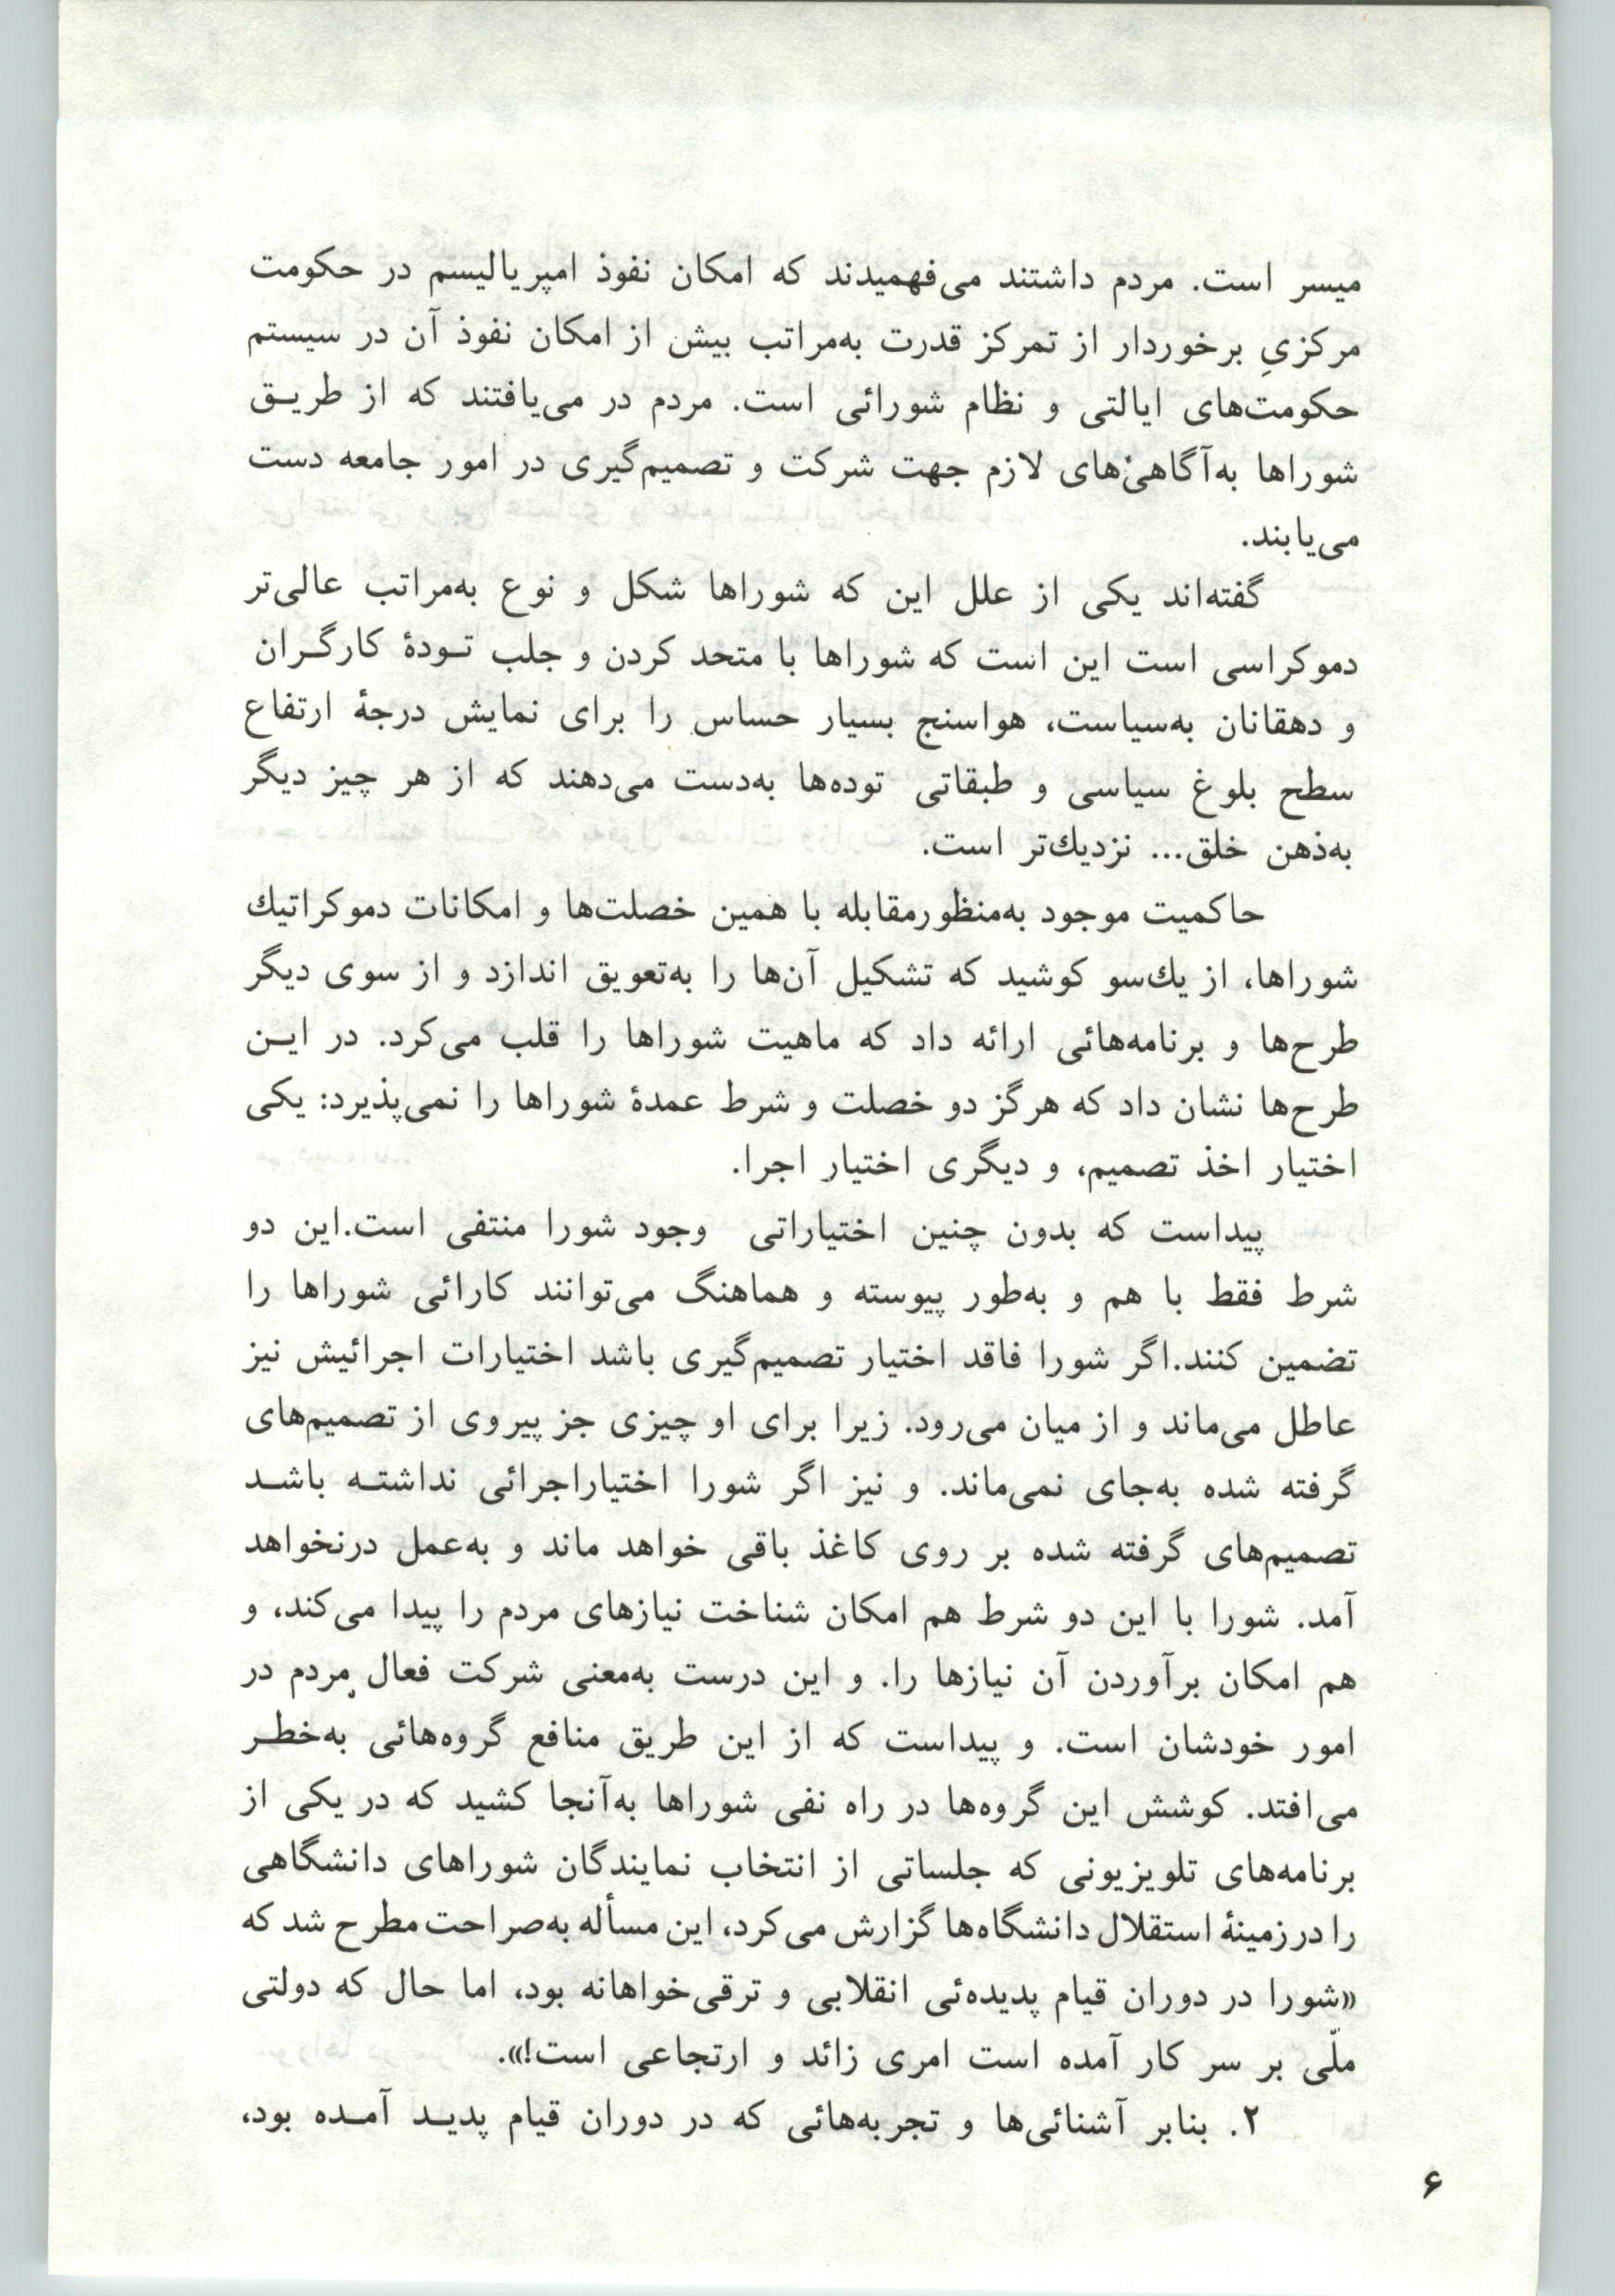 میسر است. مردم داشتند می‌فهمیدند که امکان نفوذ امپریالیسم در حکومت
مرکزیِ برخوردار از تمرکز قدرت به‌مراتب بیش از امکان نفوذ آن در سیستم
حکومت‌های ایالتی و نظام شورائی است. مردم در می‌یافتند که از طریـق
شوراها به‌آگاهی‌های لازم جهت شرکت و تصمیم‌گیری در امور جامعه دست
می‌یابند.
گفته‌اند یکی از علل این که شوراها شکل و نوع به‌مراتب عالی‌تر
دموکراسی است این است که شوراها با متحد کردن و جلب تـودهٔ کارگـران
و دهقانان به‌سیاست، هواسنج بسیار حساس را برای نمایش درجهٔ ارتفاع
سطح بلوغ سیاسی و طبقاتی توده‌ها به‌دست می‌دهند که از هر چیز دیگر
به‌ذهن خلق... نزدیك‌تر است.
حاکمیت موجود به‌منظورمقابله با همین خصلت‌ها و امکانات دموکراتیك
شوراها، از یك‌سو کوشید که تشکیل آن‌ها را به‌تعویق اندازد و از سوی دیگر
طرح‌ها و برنامه‌هائی ارائه داد که ماهیت شوراها را قلب می‌کرد. در ایـن
طرح‌ها نشان داد که هرگز دو خصلت و شرط عمدهٔ شوراها را نمی‌پذیرد: یکی
اختیار اخذ تصمیم، و دیگری اختیار اجرا.
پیداست که بدون چنین اختیاراتی وجود شورا منتفی است.این دو
شرط فقط با هم و به‌طور پیوسته و هماهنگ می‌توانند کارائی شوراها را
تضمین کنند.اگر شورا فاقد اختیار تصمیم‌گیری باشد اختیارات اجرائیش نیز
عاطل می‌ماند و از میان می‌رود. زیرا برای او چیزی جز پیروی از تصمیم‌های
گرفته شده به‌جای نمی‌ماند. و نیز اگر شورا اختیاراجرائی نداشتـه باشـد
تصمیم‌های گرفته شده بر روی کاغذ باقی خواهد ماند و به‌عمل درنخواهد
آمد. شورا با این دو شرط هم امکان شناخت نیازهای مردم را پیدا می‌کند، و
هم امکان برآوردن آن نیازها را. و این درست به‌معنی شرکت فعال مردم در
امور خودشان است. و پیداست که از این طریق منافع گروه‌هائی به‌خطـر
می‌افتد. کوشش این گروه‌ها در راه نفی شوراها به‌آنجا کشید که در یکی از
برنامه‌های تلویزیونی که جلساتی از انتخاب نمایندگان شوراهای دانشگاهی
را در زمینهٔ استقلال دانشگاه‌ها گزارش می‌کرد، این مسأله به‌صراحت مطرح شد که
«شورا در دوران قیام پدیده‌ئی انقلابی و ترقی‌خواهانه بود، اما حال که دولتی
ملّی بر سر کار آمده است امری زائد و ارتجاعی است!».
۲. بنابر آشنائی‌ها و تجربه‌هائی که در دوران قیام پدیـد آمـده بود،
۶